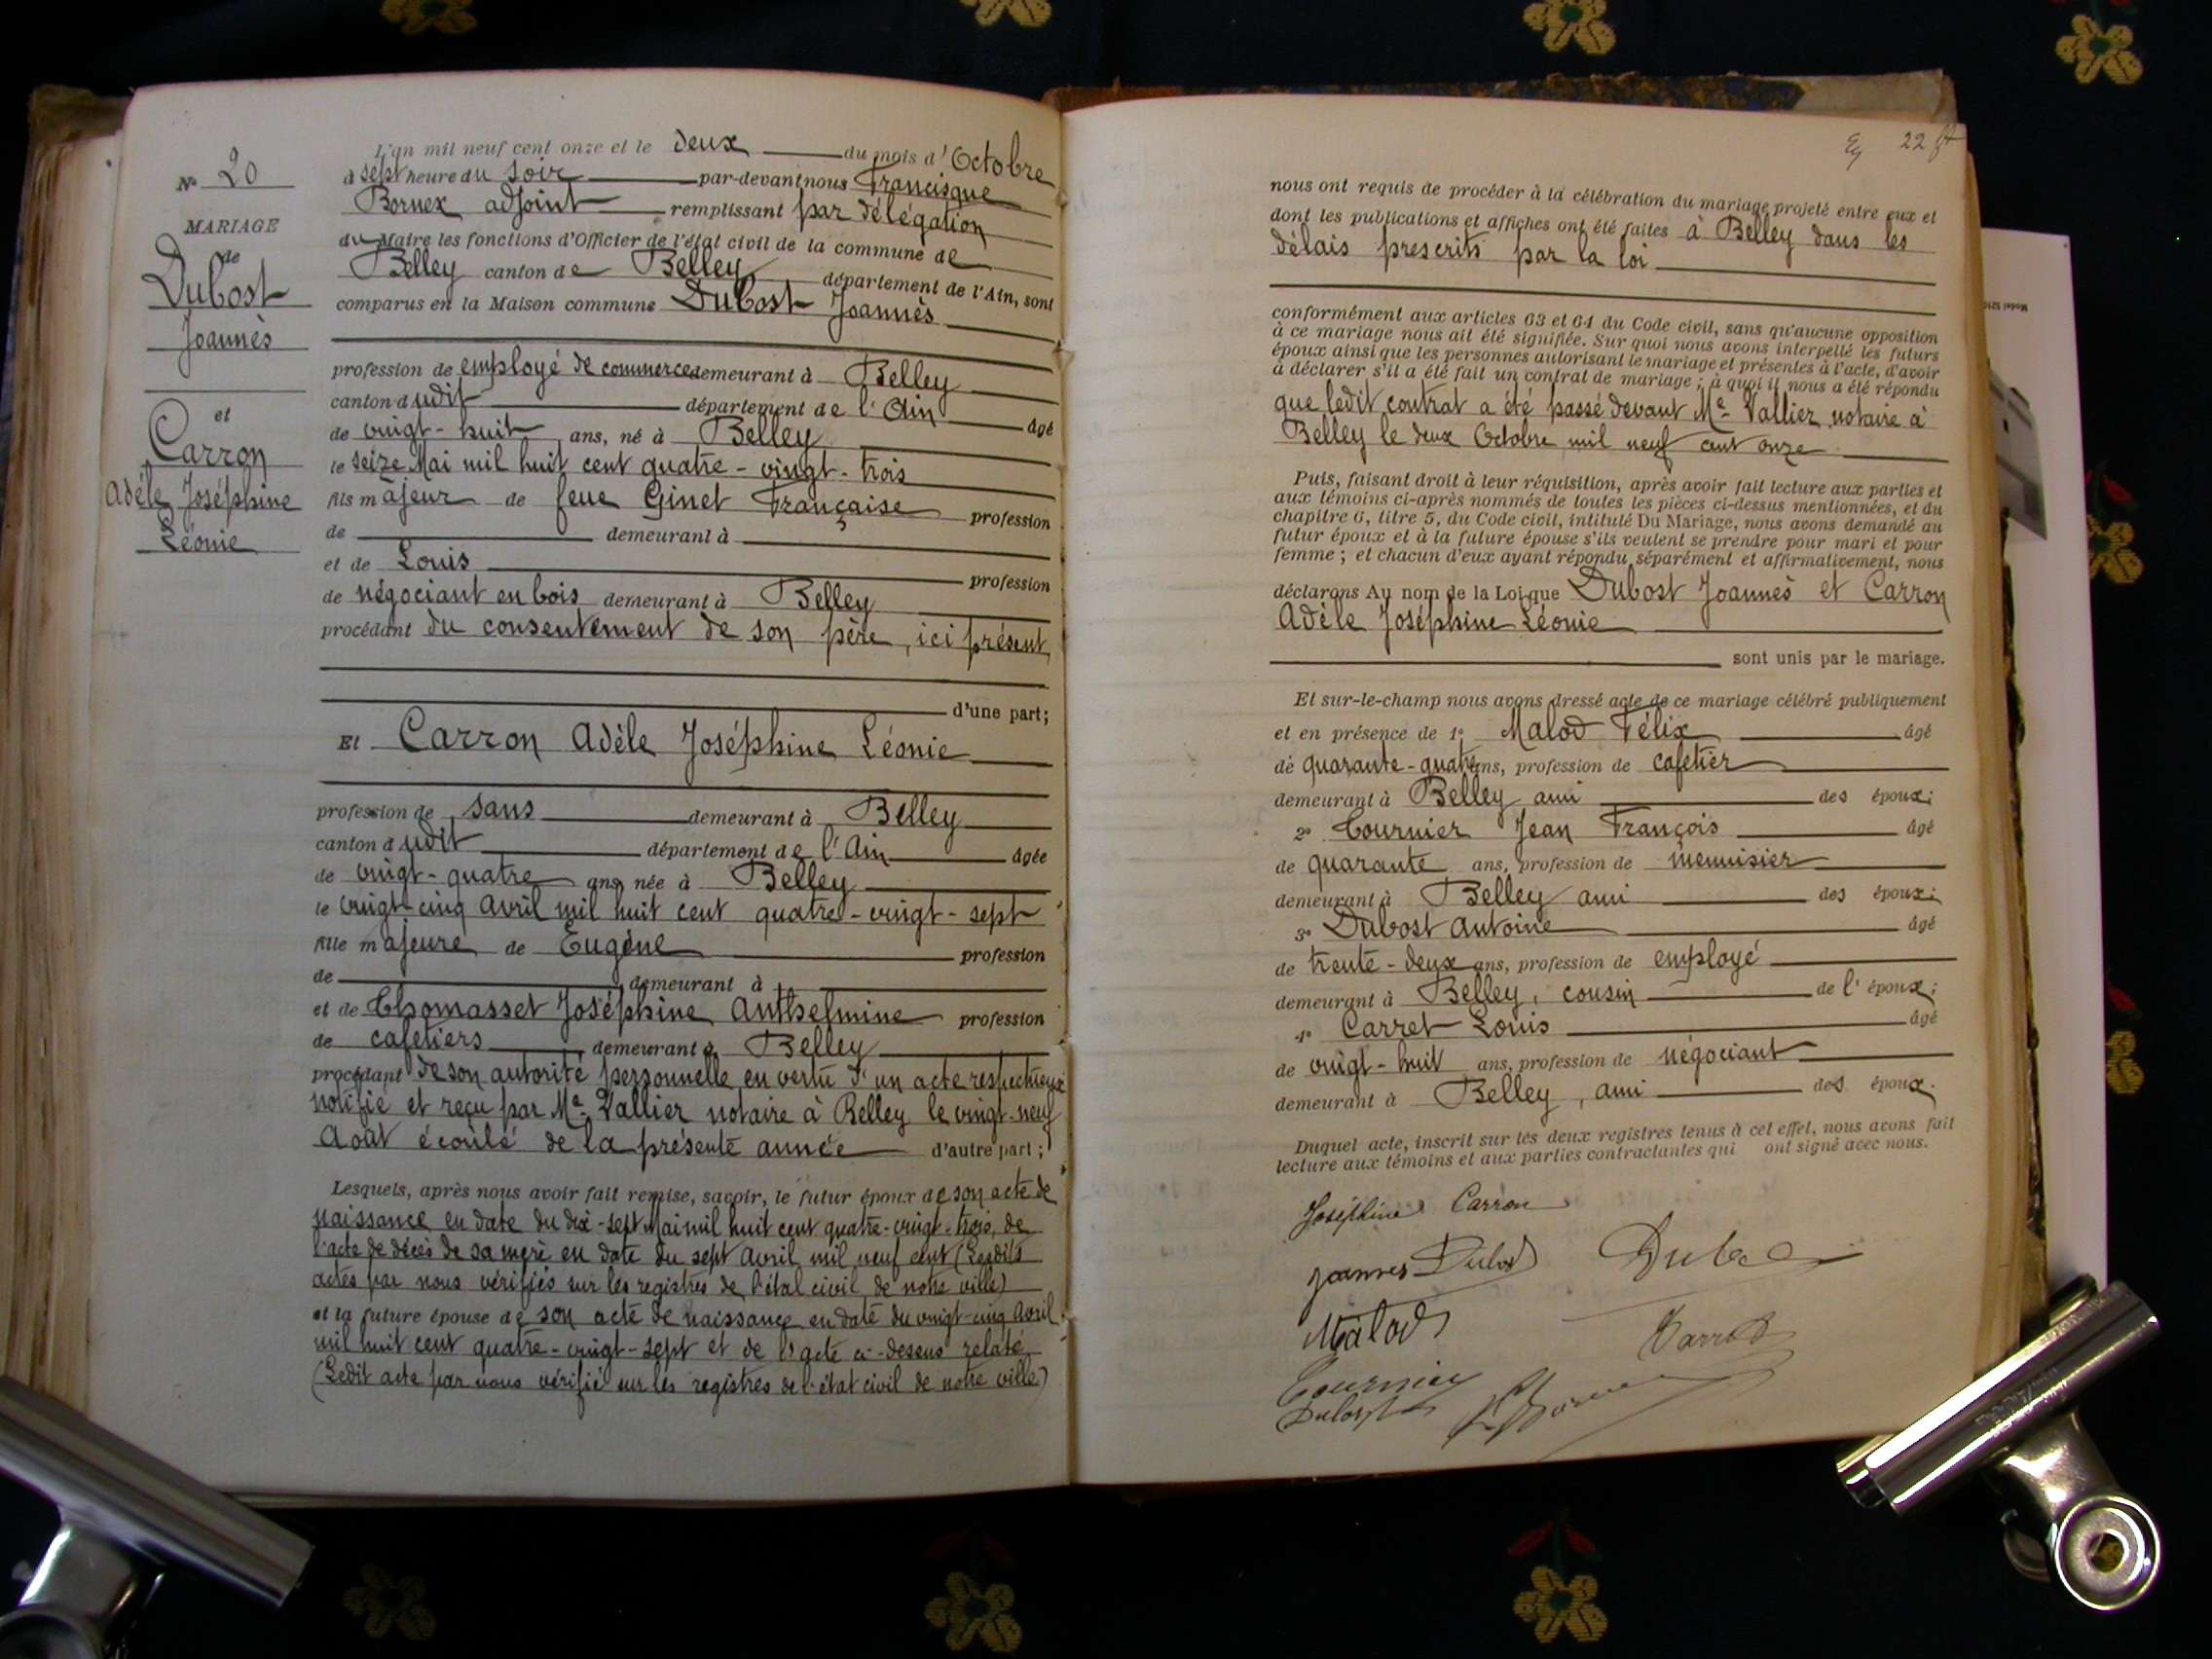 N° 20
MARIAGE
de
Dubost
Joannès
et
Carron
Adèle Joséphine
Léonie
L'an mil neuf cent onze et le deux du mois d'Octobre
à sept heure du soir par-devant nous Francisque
Bornex adjoint remplissant par délégation
du Maire les fonctions d'Officier de l'état civil de la commune de
Belley canton de Belley, département de l'Ain, sont
comparus en la Maison commune Dubost Joannès
profession de employé de commerce demeurant à Belley
canton dudit département de l'Ain âgé
de vingt-huit ans, né à Belley
le seize Mai mil huit cent quatre-vingt-trois
fils majeur de feue Ginet Française profession
de demeurant à
et de Louis profession
de négociant en bois demeurant à Belley
procédant du consentement de son père, ici présent,
d'une part;
Et Carron Adèle Joséphine Léonie
profession de sans demeurant à Belley
canton dudit département de l'Ain âgée
de vingt-quatre ans, née à Belley
le vingt-cinq Avril mil huit cent quatre-vingt-sept
fille majeure de Eugène profession
de demeurant à
et de Thomasset Joséphine Anthelmine profession
de cafetiers demeurant à Belley
procédant de son autorité personnelle en vertu d'un acte respectueux
notifié et reçu par Me Vallier notaire à Belley le vingt-neuf
Août écoulé de la présente année d'autre part;
Lesquels, après nous avoir fait remise, savoir, le futur époux de son acte de
naissance en date du dix-sept Mai mil huit cent quatre-vingt-trois, de
l'acte de décès de sa mère en date du sept avril mil neuf cent (Lesdits
actes par nous vérifiés sur les registres de l'état civil de notre ville)
et la future épouse de son acte de naissance en date du vingt-cinq Avril
mil huit cent quatre-vingt-sept et de l'acte ci-dessus relaté
(Ledit acte par nous vérifié sur les registres de l'état civil de notre ville)
22
nous ont requis de procéder à la célébration du mariage projeté entre eux et
dont les publications et affiches ont été faites à Belley dans les
délais prescrits par la loi
conformément aux articles 63 et 64 du Code civil, sans qu'aucune opposition
à ce mariage nous ait été signifiée. Sur quoi nous avons interpellé les futurs
époux ainsi que les personnes autorisant le mariage et présentes à l'acte, d'avoir
à déclarer s'il a été fait un contrat de mariage; à quoi il nous a été répondu
que ledit contrat a été passé devant Me Vallier notaire à
Belley le deux Octobre mil neuf cent onze
Puis, faisant droit à leur réquisition, après avoir fait lecture aux parties et
aux témoins ci-après nommés de toutes les pièces ci-dessus mentionnées, et du
chapitre 6, titre 5, du Code civil, intitulé Du Mariage, nous avons demandé au
futur époux et à la future épouse s'ils veulent se prendre pour mari et pour
femme; et chacun d'eux ayant répondu séparément et affirmativement, nous
déclarons Au nom de la Loi que Dubost Joannès et Carron
Adèle Joséphine Léonie
sont unis par le mariage.
Et sur-le-champ nous avons dressé acte de ce mariage célébré publiquement
et en présence de 1° Malod Félix âgé
de quarante-quatre ans, profession de cafetier
demeurant à Belley ami des époux;
2° Tournier Jean François âgé
de quarante ans, profession de menuisier
demeurant à Belley ami des époux;
3° Dubost Antoine âgé
de trente-deux ans, profession de employé
demeurant à Belley, cousin de l'époux;
4° Carret Louis âgé
de vingt-huit ans, profession de négociant
demeurant à Belley, ami des époux.
Duquel acte, inscrit sur les deux registres tenus à cet effet, nous avons fait
lecture aux témoins et aux parties contractantes qui ont signé avec nous.
Joséphine Carron
Joannes Dubost
Malod
Tournier
Dubost